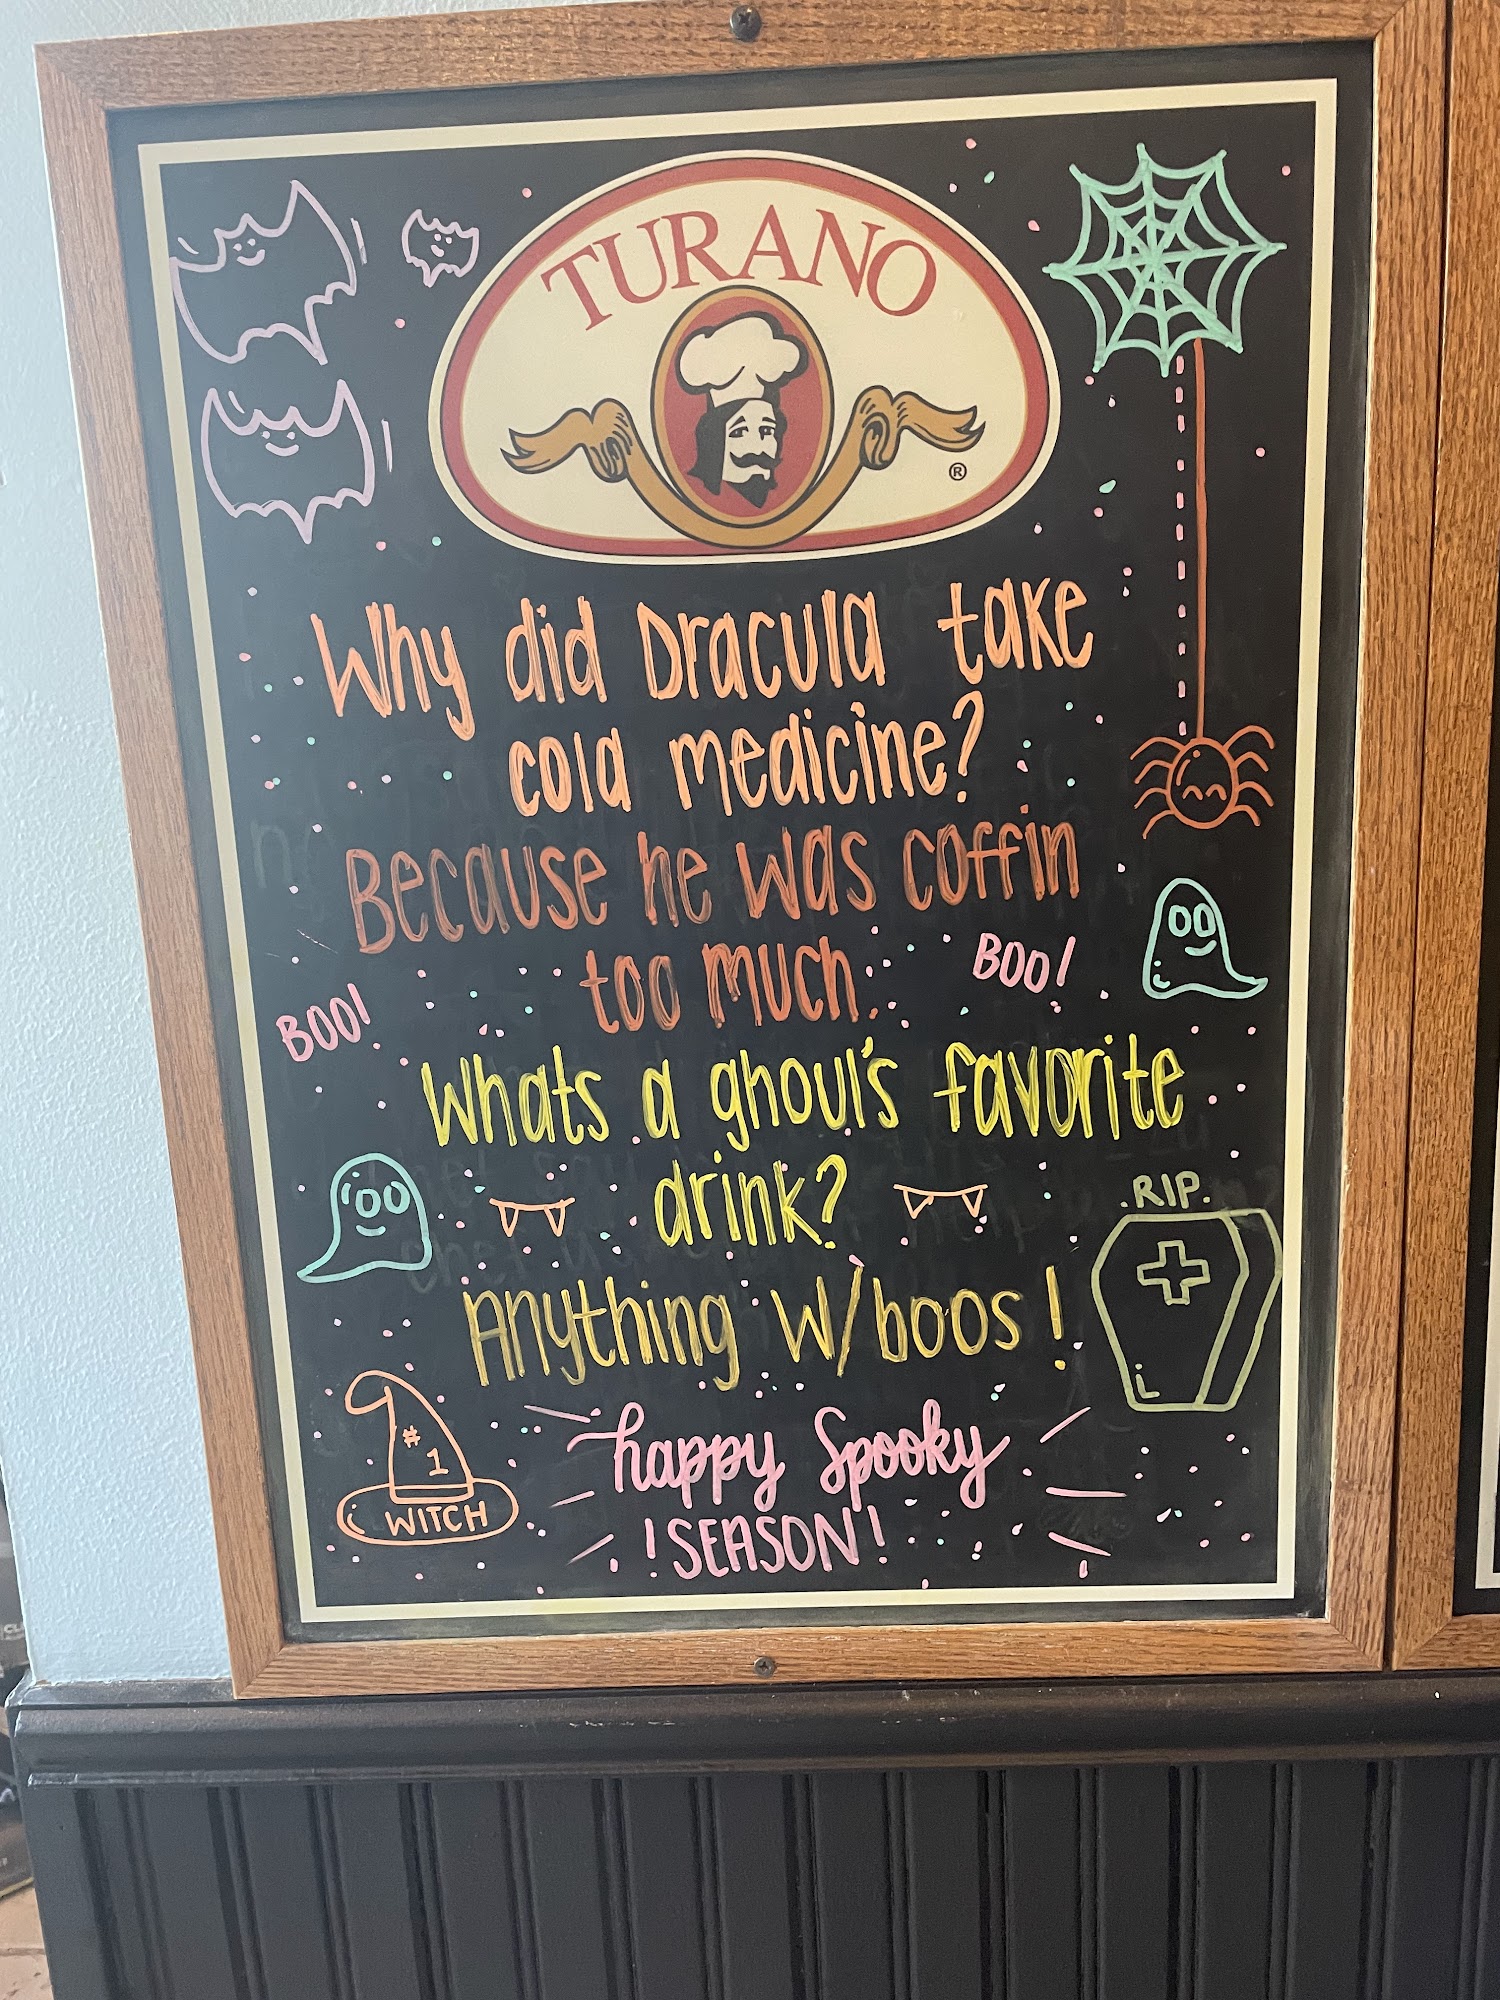 TURANO
®
Why did Dracula take
cold medicine?
Because he was coffin
too much.
BOO!
BOO!
Whats a ghoul's favorite
drink?
Anything w/boos!
.RIP.
#1
WITCH
happy Spooky
!SEASON!